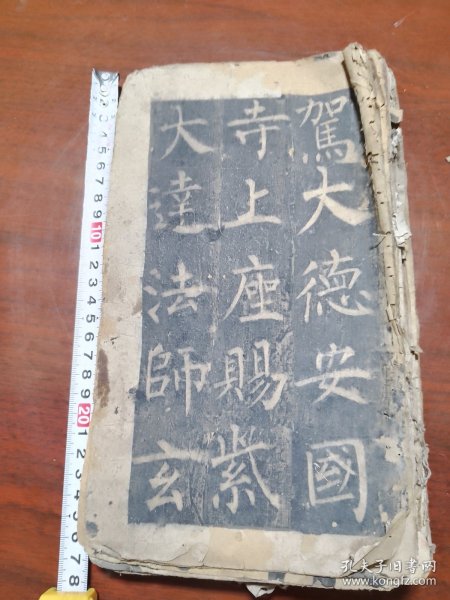 駕大德安國
寺上座賜紫
大達法師玄
9
10
1
2
3
4
5
6
7
8
9
10
1
2
3
4
5
6
7
8
9
20
1
2
3
4
5
6
7
8
孔夫子旧书网
www.kongfz.com